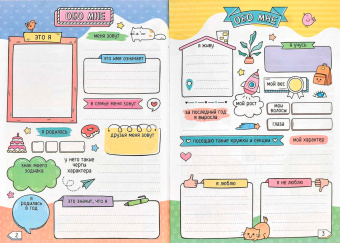 ОБО МНЕ
ЭТО Я
меня зовут
это имя означает
в семье меня зовут
я родилась
друзья меня зовут
знак моего
зодиака
у него такие
черты
характера
я
родилась
в год
это значит, что я
2
ОБО МНЕ
я живу
я учусь
мой вес
мой рост
мои
волосы
за последний год
я выросла
глаза
посещаю такие кружки и секции
мой характер
я люблю
я не люблю
3